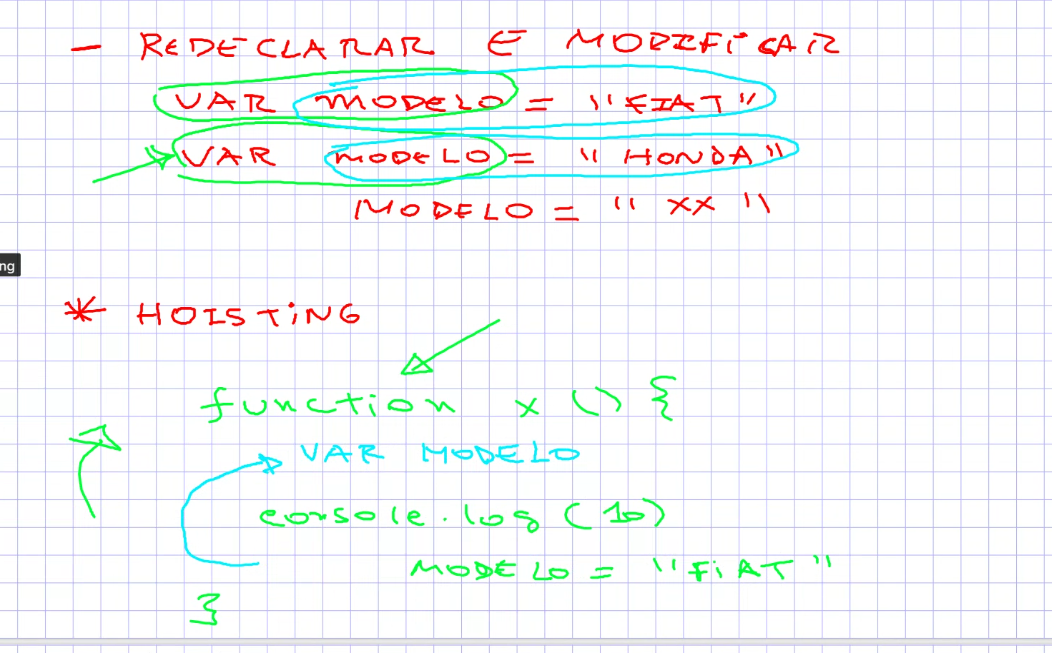 - REDECLARAR E MODIFICAR
VAR MODELO = "FIAT"
VAR MODELO = "HONDA"
MODELO = "XX"
ng
* HOISTING
function x () {
VAR MODELO
console.log (10)
MODELO = "FIAT"
}